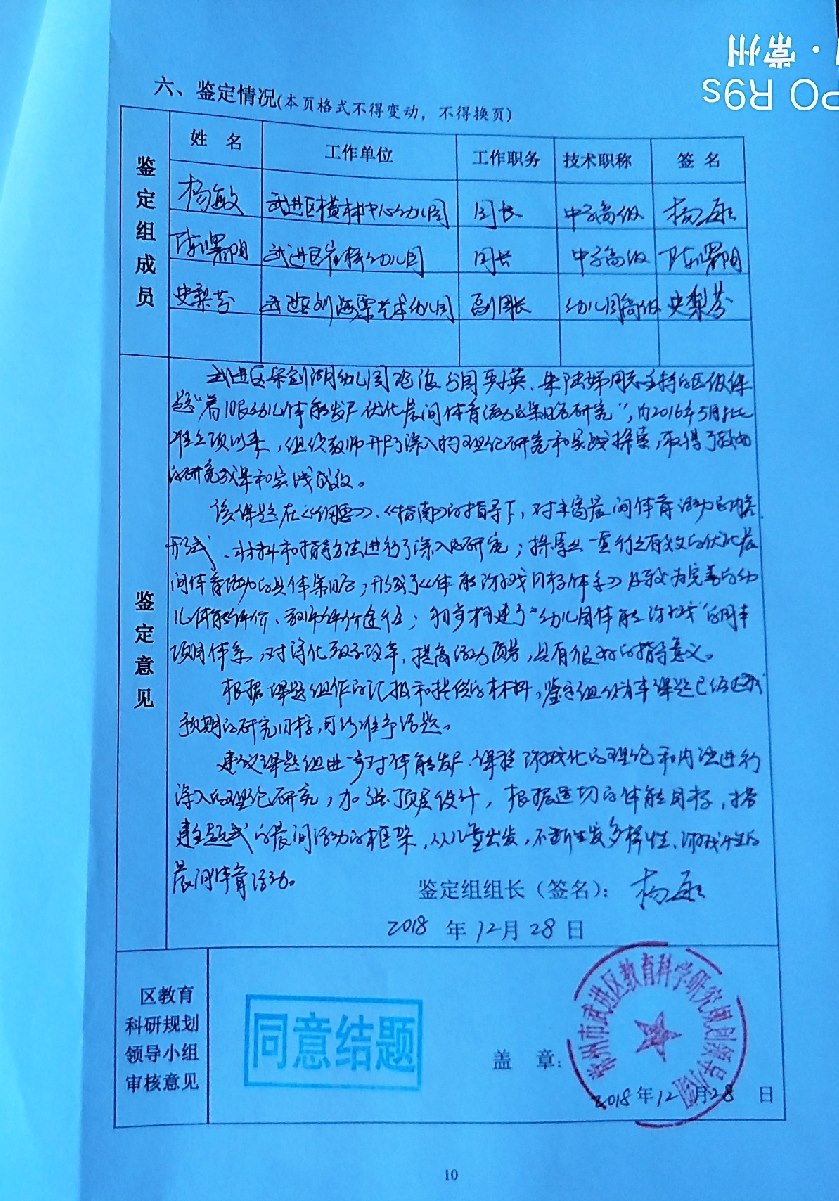 常州
PO R9s
六、鉴定情况(本页格式不得变动，不得换页)
鉴定组成员
姓 名 工作单位 工作职务 技术职称 签 名
杨敏 武进区横林中心幼儿园 园长 中学高级 杨敏
陈曙明 武进区 幼儿园 园长 中学高级 陈曙明
史梨芬 武进区刘海粟艺术幼儿园 副园长 幼儿园高级 史梨芬
鉴定意见
武进区 剑湖幼儿园 同志主持的区级课
题“着眼幼儿体能发展 优化晨间体育活动策略研究”，自2016年5月批
准立项以来，组织教师开展深入的理论研究和实践探索，取得了
的研究成果和实践成效。
该课题在《纲要》、《指南》的指导下，对丰富晨间体育活动的内容
形式、材料和指导方法进行了深入的研究；探索出一套行之有效的优化晨
间体育活动的具体策略，形成了《体能游戏目标体系》及较为完善的幼
儿体能评价、教师评价途径；初步构建了“幼儿园体能游戏”的园本
项目体系，对深化教学改革，提高活动质量，具有很好的指导意义。
根据课题组作的汇报和提供的材料，鉴定组认为本课题已经达成
预期的研究目标，可以准予结题。
建议课题组进一步对体能发展、课程游戏化的理论和内涵进行
深入的理论研究，加强顶层设计，根据适切的体能目标，搭
建主题式的晨间活动的框架，从儿童出发，不断生发多样性、游戏性的
晨间体育活动。
鉴定组组长（签名）： 杨敏
2018 年 12月 28 日
区教育
科研规划
领导小组
审核意见
同意结题
盖 章：
常州市武进区教育科学研究规划领导小组
2018年12月28 日
10